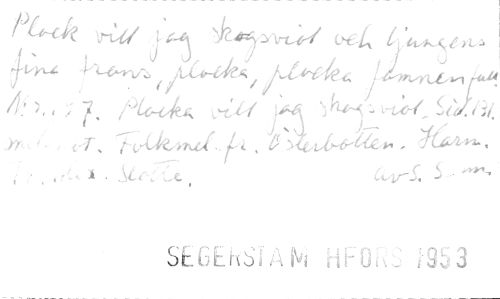 Plock vill jag skogsviol och ljungens
fina frans, plocka, plocka famnen full
Plocka vill jag skogsviol. Sid.
Folkmel. fr. Österbotten. Harm.
av S.
SEGERSTAM HFORS 1953